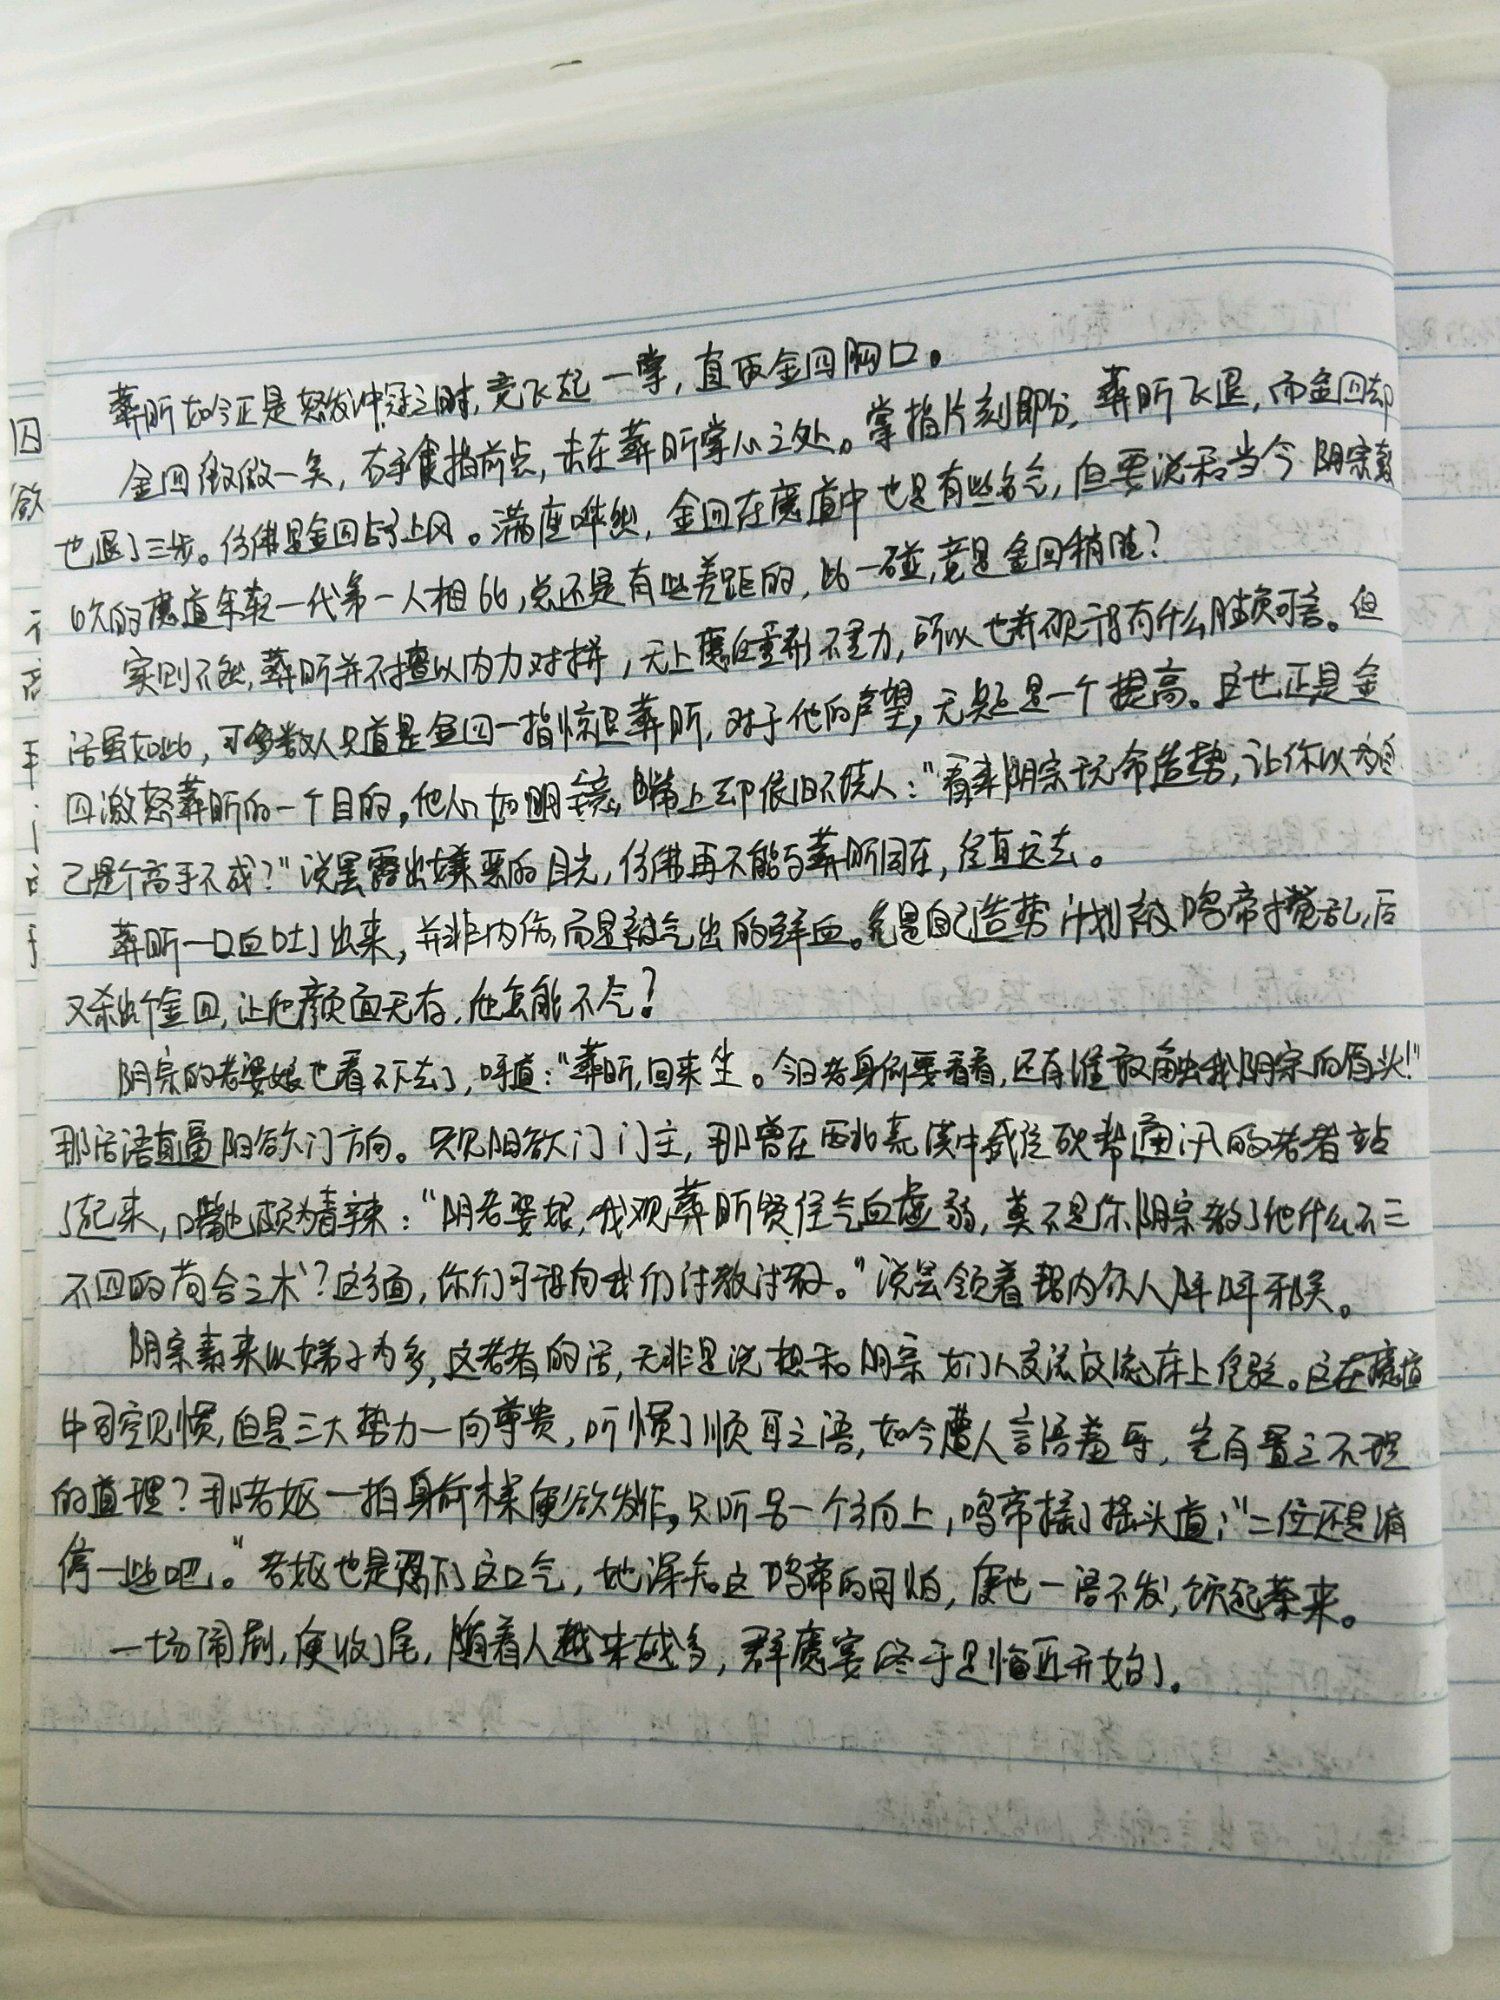 葬昕如今正是怒发冲冠之时,竟飞起一掌,直取金四胸口。
金四微微一笑,右手食指前点,击在葬昕掌心之处。掌指片刻即分,葬昕飞退,而金四却
也退了三步。仿佛是金四占了上风。满座哗然,金四在魔道中也是有些名气,但要说和当今阴宗教
的魔道年轻一代第一人相比,总还是有些差距的,此一碰,竟是金四稍胜?
实则不然,葬昕并不擅以内力对拼,无上魔重形不重力,所以也并不见得有什么胜负可言。但
话虽如此,可多数人只道是金四一指惊退葬昕,对于他的声望,无疑是一个提高。这也正是金
四激怒葬昕的一个目的。他心如明镜,嘴上却依旧不饶人:“看来阴宗玩命造势,让你以为自
己是个高手不成?”说罢露出嫌恶的目光,仿佛再不能与葬昕同在,径直远去。
葬昕一口血吐了出来,并非内伤,而是被气出的鲜血。先是自己造势计划被鸣帝搅乱,后
又杀出个金四,让他颜面无存,他怎能不气?
阴宗的老婆娘也看不下去了,呼道:“葬昕,回来坐。今日老身倒要看看,还有谁敢触我阴宗的眉头!”
那话语直逼阳欲门方向。只见阳欲门门主,那曾在西北荒漠中截住砍帮通讯的老者站
了起来,嘴也颇为毒辣:“阴老婆娘,我观葬昕贤侄气血虚弱,莫不是你阴宗教了他什么不三
不四的苟合之术?这方面,你们可得向我们讨教讨教。”说罢领着帮内众人阵阵邪笑。
阴宗素来以女弟子为多,这老者的话,无非是说想和阴宗女门人交流交流床上经验。这在魔道
中司空见惯,但是三大势力一向尊贵,听惯了顺耳之语,如今遭人言语羞辱,岂有置之不理
的道理?那老妪一拍身前木桌便欲发作,只听另一个方向上,鸣帝摇了摇头道:“二位还是消
停一些吧。”老妪也是忍下了这口气,她深知这鸣帝的可怕,便也一语不发,饮起茶来。
一场闹剧,便收了尾,随着人越来越多,群魔宴终于是临近开始了。